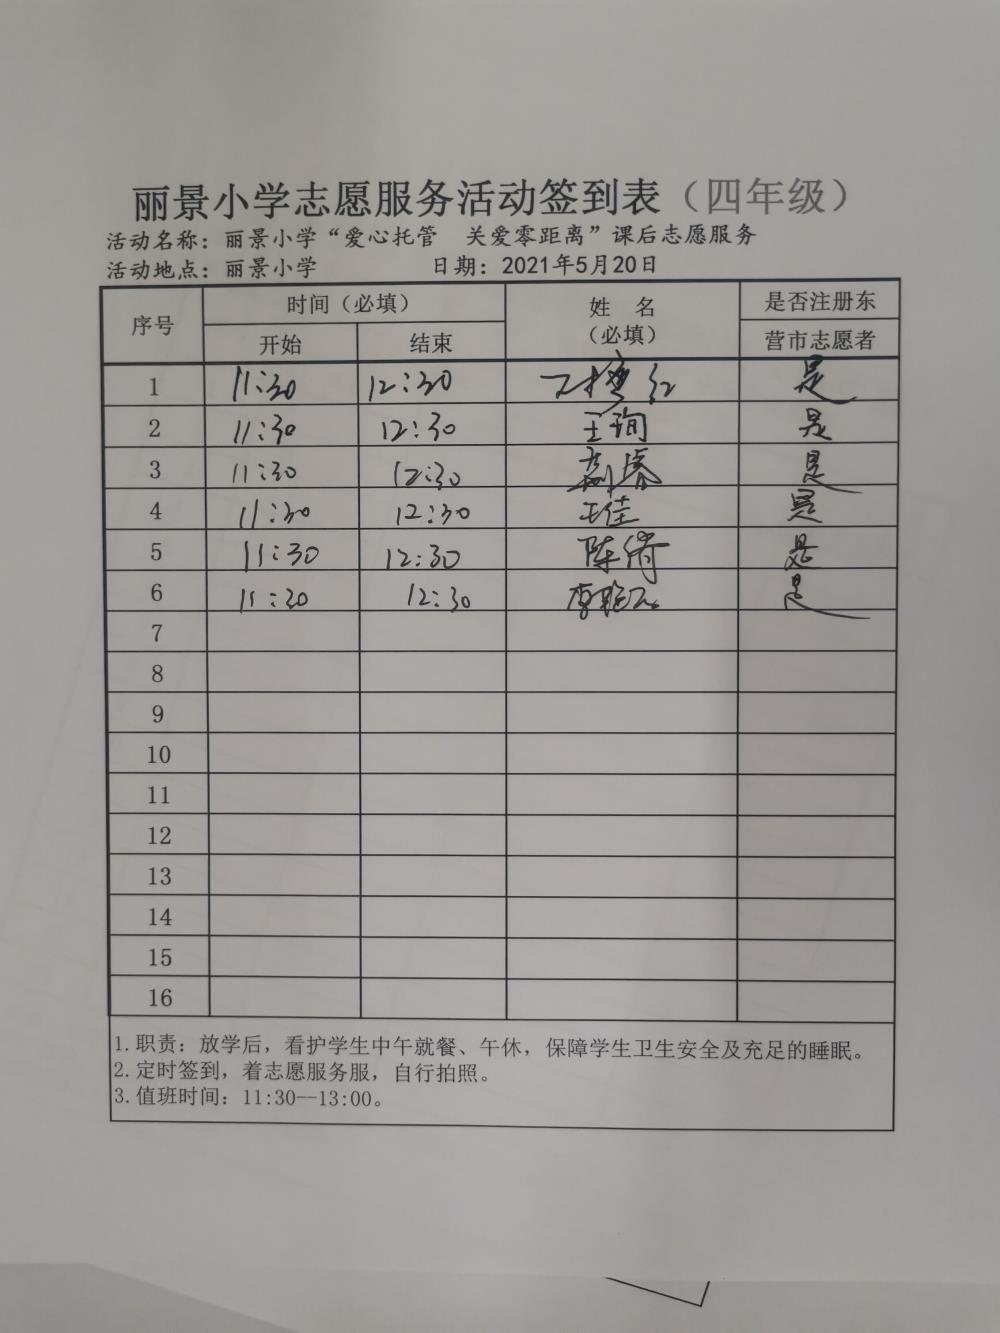 丽景小学志愿服务活动签到表（四年级）
活动名称：丽景小学“爱心托管　关爱零距离”课后志愿服务
活动地点：丽景小学　日期：2021年5月20日
序号　时间（必填）　姓　名（必填）　是否注册东营市志愿者
开始　结束
1　11:30　12:30　是
2　11:30　12:30　王珣　是
3　11:30　12:30　是
4　11:30　12:30　王佳　是
5　11:30　12:30　陈倩　是
6　11:30　12:30　是
7
8
9
10
11
12
13
14
15
16
1.职责：放学后，看护学生中午就餐、午休，保障学生卫生安全及充足的睡眠。
2.定时签到，着志愿服务服，自行拍照。
3.值班时间：11:30--13:00。